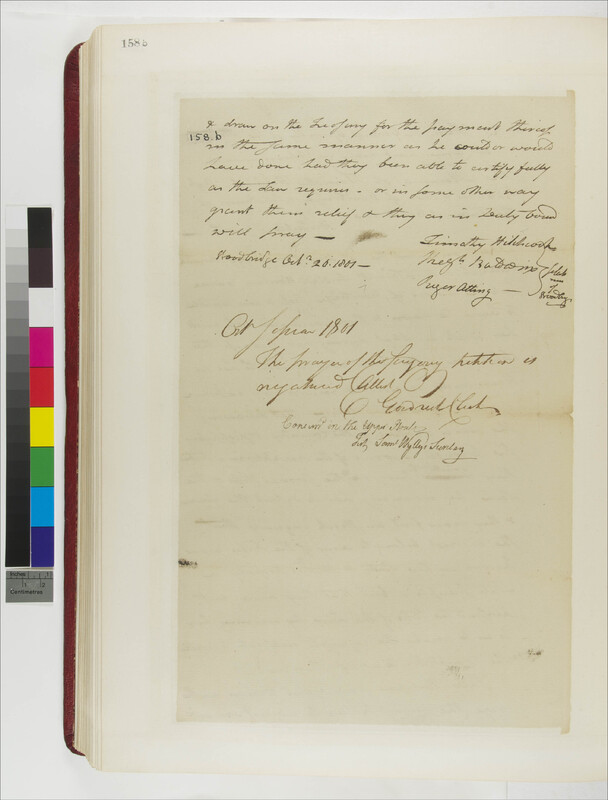 158 b
& draw on the Treasury for the payment thereof
158. b
in the same manner as he could or would
have done had they been able to certify fully
as the Law requires - or in some other way
grant them relief & they as in Duty bound
will pray —
Timothy Hitchcock
Woodbridge Octr. 20. 1801 —
Baldwin
Select
men
of
Woodbrge
Octr Session 1801
The prayer of the foregoing petition is
negatived
Attest
Goodrich Clerk
Concurd in the Upper House
Test, Saml Wyllys Secrtay
Inches
1
2
Centimetres